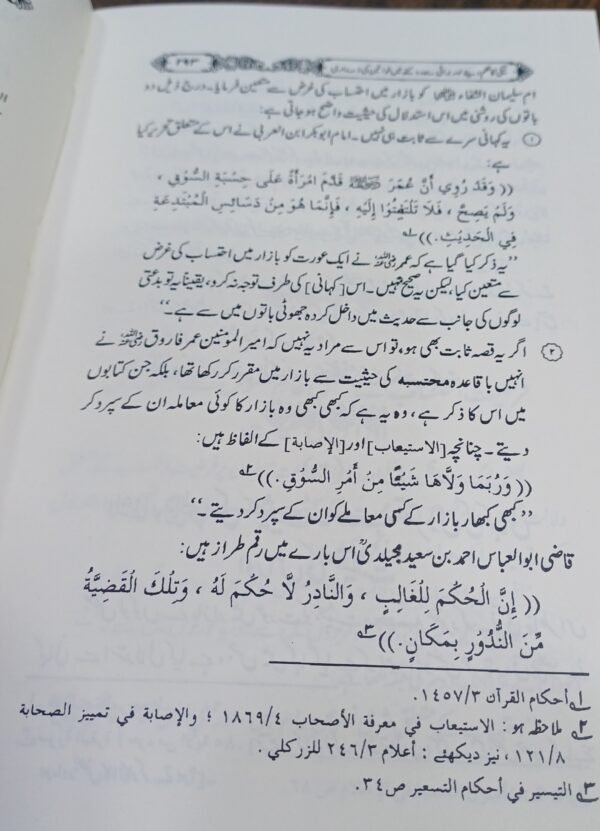 نیکی کا حکم دینے اور برائی سے روکنے میں خواتین کی ذمہ داری ۲۹۳
ام سلیمان الشفاء رضی اللہ عنہا کو بازار میں احتساب کی غرض سے متعین فرمایا۔ درج ذیل دو
باتوں کی روشنی میں اس استدلال کی حیثیت واضح ہو جاتی ہے:
① یہ کہانی سرے سے ثابت ہی نہیں۔ امام ابوبکر ابن العربی نے اس کے متعلق تحریر کیا
ہے:
(( وَقَدْ رُوِيَ أَنَّ عُمَرَ رضی اللہ عنہ قَدَّمَ امْرَأَةً عَلَى حِسْبَةِ السُّوْقِ ،
وَلَمْ يَصِحَّ ، فَلَا تَلْتَفِتُوْا إِلَيْهِ ، فَإِنَّمَا هُوَ مِنْ دَسَائِسِ الْمُبْتَدِعَةِ
فِي الْحَدِيْثِ.))۱
”یہ ذکر کیا گیا ہے کہ عمر رضی اللہ عنہ نے ایک عورت کو بازار میں احتساب کی غرض
سے متعین کیا، لیکن یہ صحیح نہیں۔ اس [کہانی] کی طرف توجہ نہ کرو، یقیناً یہ تو بدعتی
لوگوں کی جانب سے حدیث میں داخل کردہ جھوٹی باتوں میں سے ہے۔“
② اگر یہ قصہ ثابت بھی ہو، تو اس سے مراد یہ نہیں کہ امیر المؤمنین عمر فاروق رضی اللہ عنہ نے
انہیں با قاعدہ محتسبہ کی حیثیت سے بازار میں مقرر کر رکھا تھا، بلکہ جن کتابوں
میں اس کا ذکر ہے، وہ یہ ہے کہ کبھی کبھی وہ بازار کا کوئی معاملہ ان کے سپرد کر
دیتے۔ چنانچہ [الاستیعاب] اور [الإصابة] کے الفاظ ہیں:
(( وَرُبَمَا وَلَّاهَا شَيْئًا مِنْ أَمْرِ السُّوْقِ.))۲
”کبھی کبھار بازار کے کسی معاملے کو ان کے سپرد کر دیتے۔“
قاضی ابو العباس احمد بن سعید مجیلدیؒ اس بارے میں رقم طراز ہیں:
(( إِنَّ الْحُكْمَ لِلْغَالِبِ ، وَالنَّادِرُ لَا حُكْمَ لَهُ ، وَتِلْكَ الْقَضِيَّةُ
مِّنَ النُّدُوْرِ بِمَكَانٍ.))۳
۱ أحكام القرآن ۱٤٥٧/۳.
۲ ملاحظہ ہو: الاستيعاب في معرفة الأصحاب ۱۸٦۹/٤ ؛ والإصابة في تمييز الصحابة
۱۲۱/۸ ، نیز دیکھئے : أعلام ۲٤٦/۳ للزركلي .
۳ التيسير في أحكام التسعير ص ۳٤.